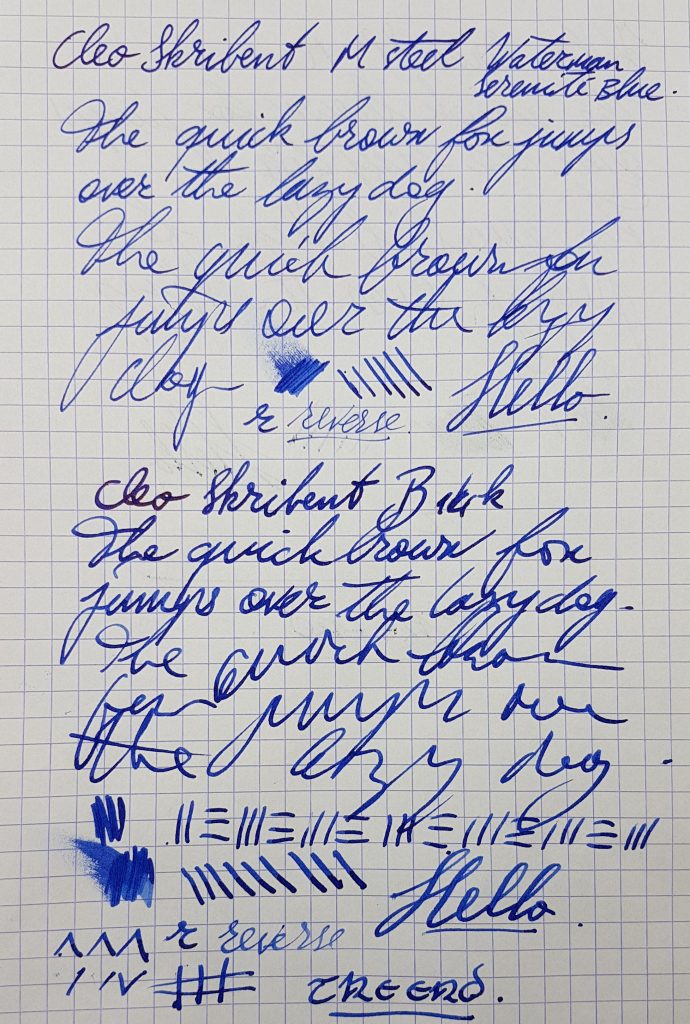 Cleo Skribent M steel Waterman
Serenité Blue.
The quick brown fox jumps
over the lazy dog.
The quick brown fox
jumps over the lazy
dog
r reverse. Hello.
Cleo Skribent B 14k
The quick brown fox
jumps over the lazy dog.
The quick brown
fox jumps over
the lazy dog.
Hello.
r reverse